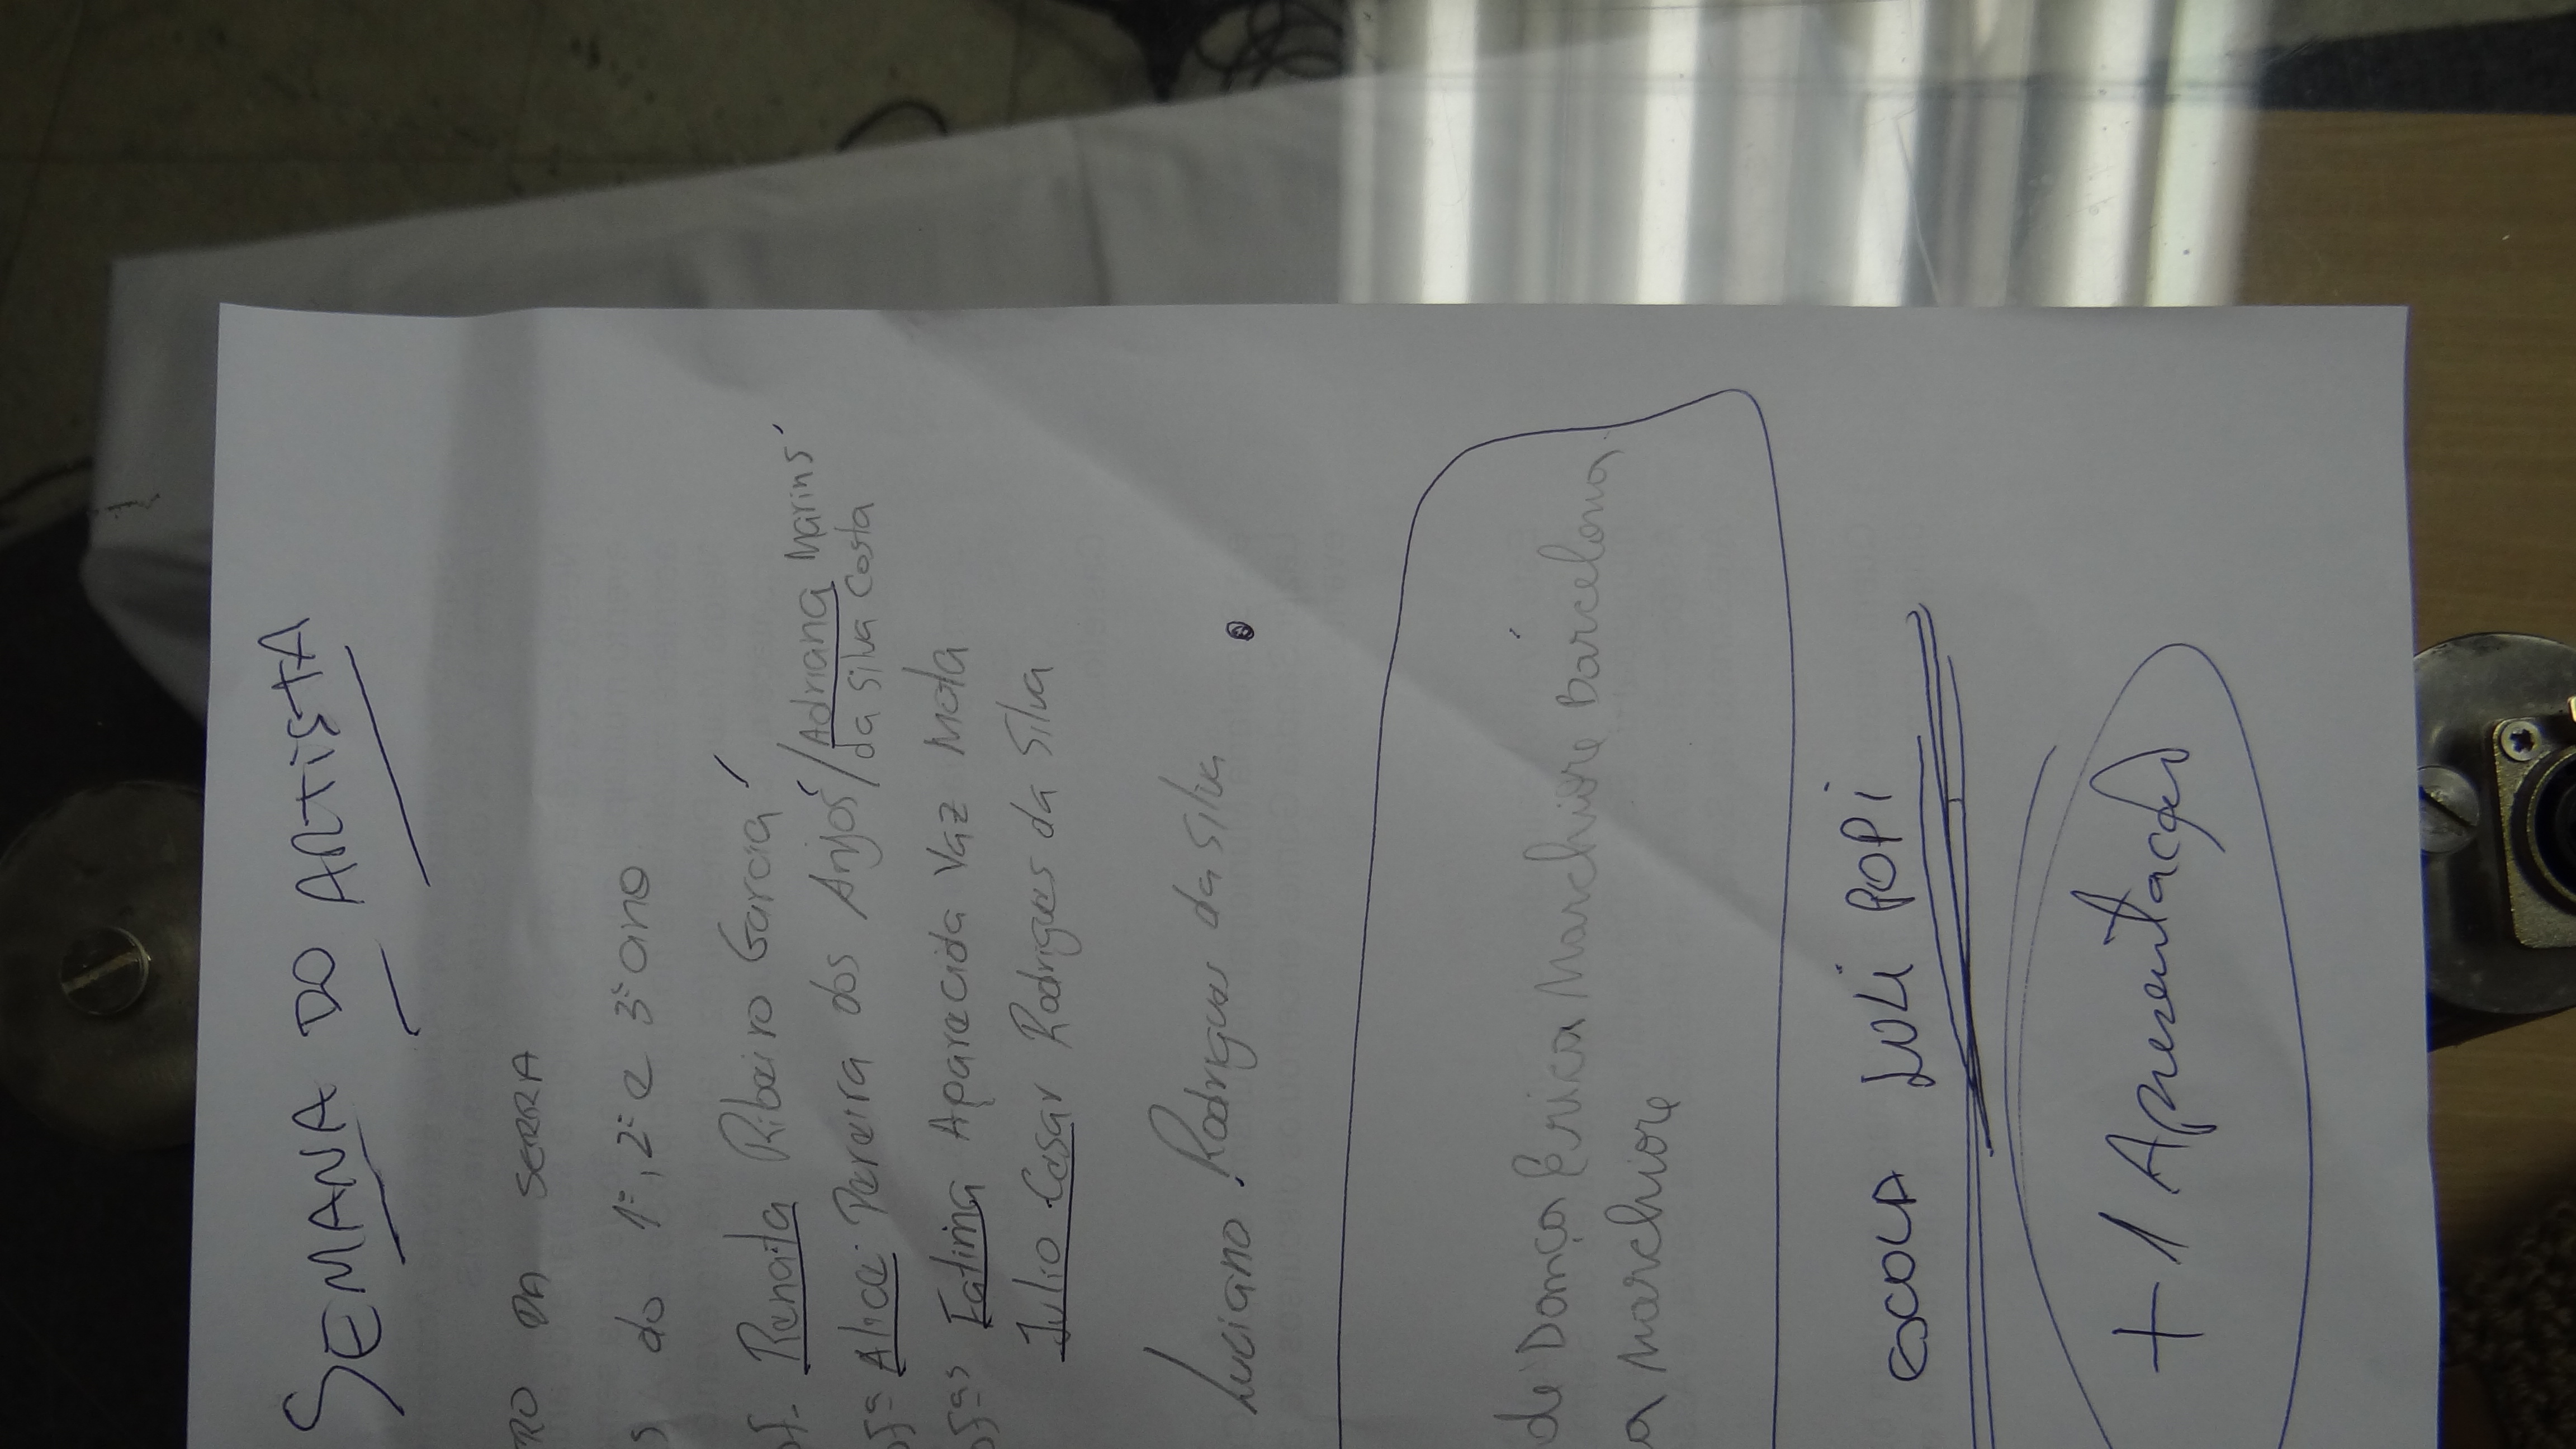 SEMANA DO ARTISTA
TRO DA SERRA
s do 1º, 2º e 3º ano
of. Renata Ribeiro Garcia /
ofª Alice Pereira dos Anjos / Adriana Marins
da Silva Costa
ofªs Fatima Aparecida Vaz Mota
Julio Cesar Rodrigues da Silva
Luciano Rodrigues da Silva
de Dança Érica Marchiore Barcelona
a Marchiore
ESCOLA LULI POPI
+ 1 Apresentação